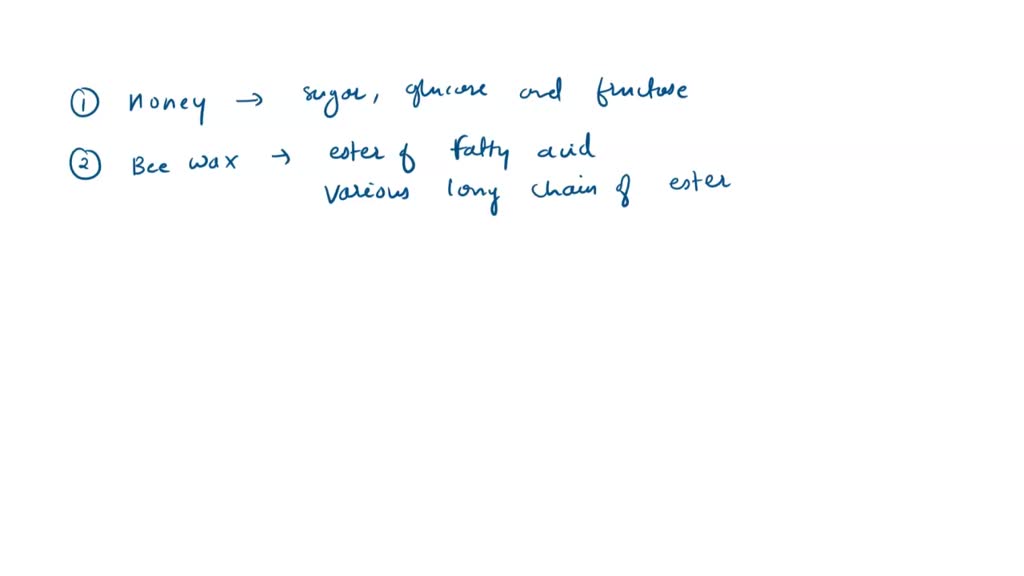 ① Honey → sugar, glucose and fructose
② Bee wax → ester of fatty acid
various long chain of ester